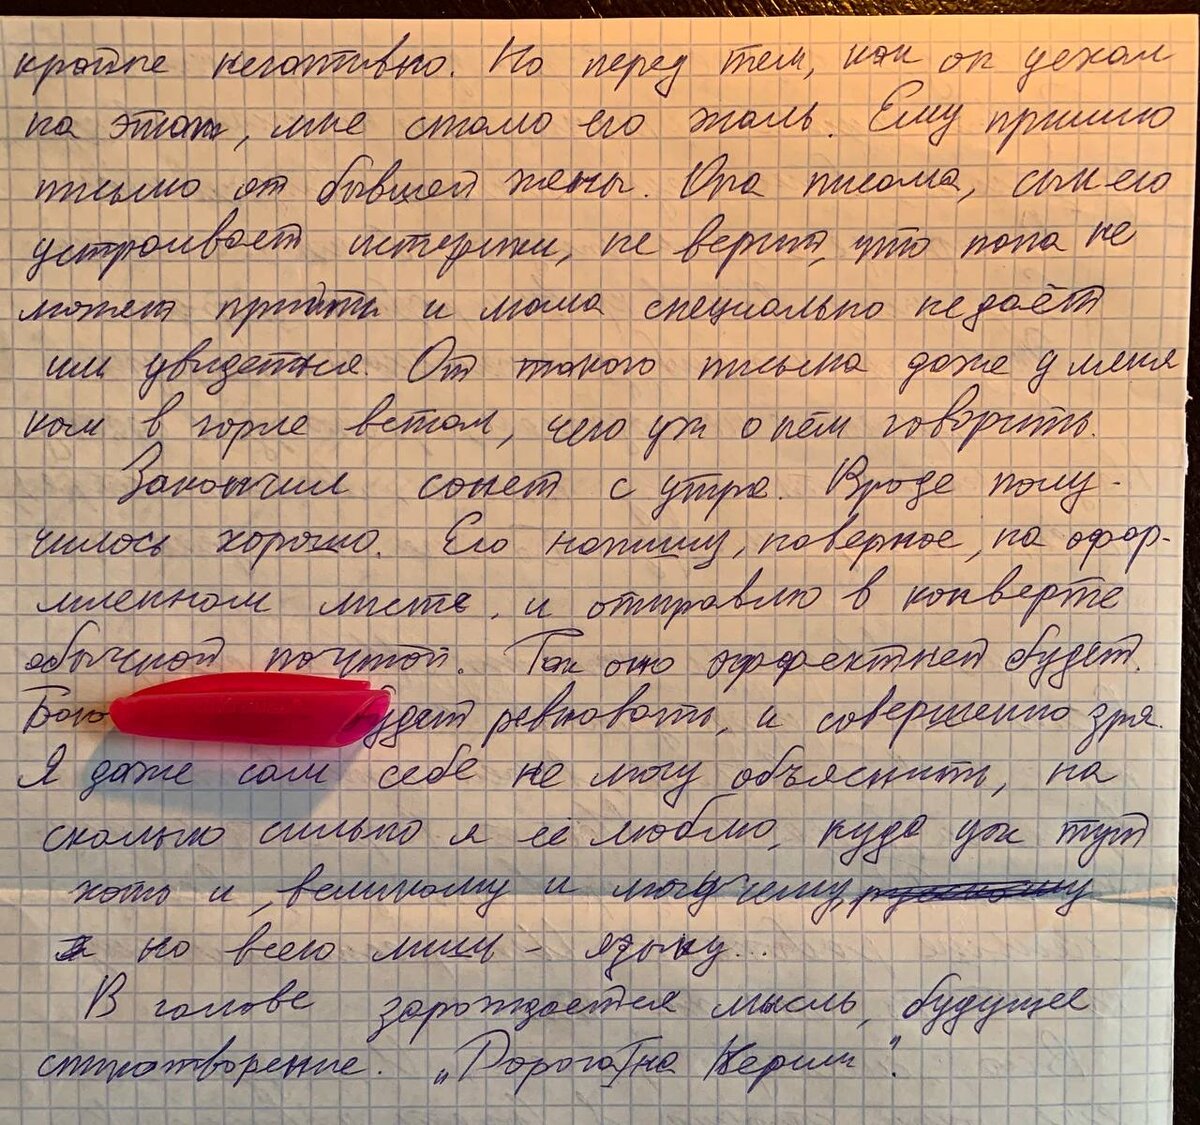 крайне негативно. Но перед тем, как он уехал
на этап, мне стало его жаль. Ему пришло
письмо от бывшей жены. Она писала, сын его
устраивает истерики, не верит, что папа не
может прийти и мама специально не даёт
им увидеться. От такого письма даже у меня
ком в горле встал, чего уж о нём говорить.
Закончил сонет с утра. Вроде полу-
чилось хорошо. Его напишу, наверное, на офор-
мленном листе, и отправлю в конверте
обычной почтой. Так оно эффектней будет.
будет ревновать, и совершенно зря.
Я даже сам себе не могу объяснить, на
сколько сильно я её люблю, куда уж тут
хоть и „великому и могучему, русскому
но всего лишь – языку...
В голове зарождается мысль, будущее
стихотворение. „Дорога на Керчь".